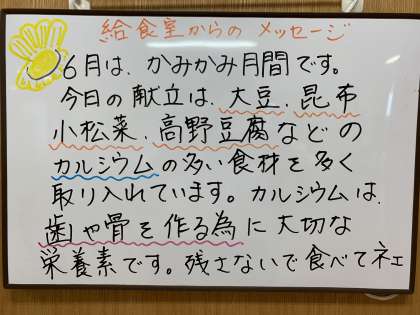 給食室からのメッセージ
6月は、かみかみ月間です。
今日の献立は、大豆、昆布
小松菜、高野豆腐などの
カルシウムの多い食材を多く
取り入れています。カルシウムは、
歯や骨を作る為に大切な
栄養素です。残さないで食べてネ